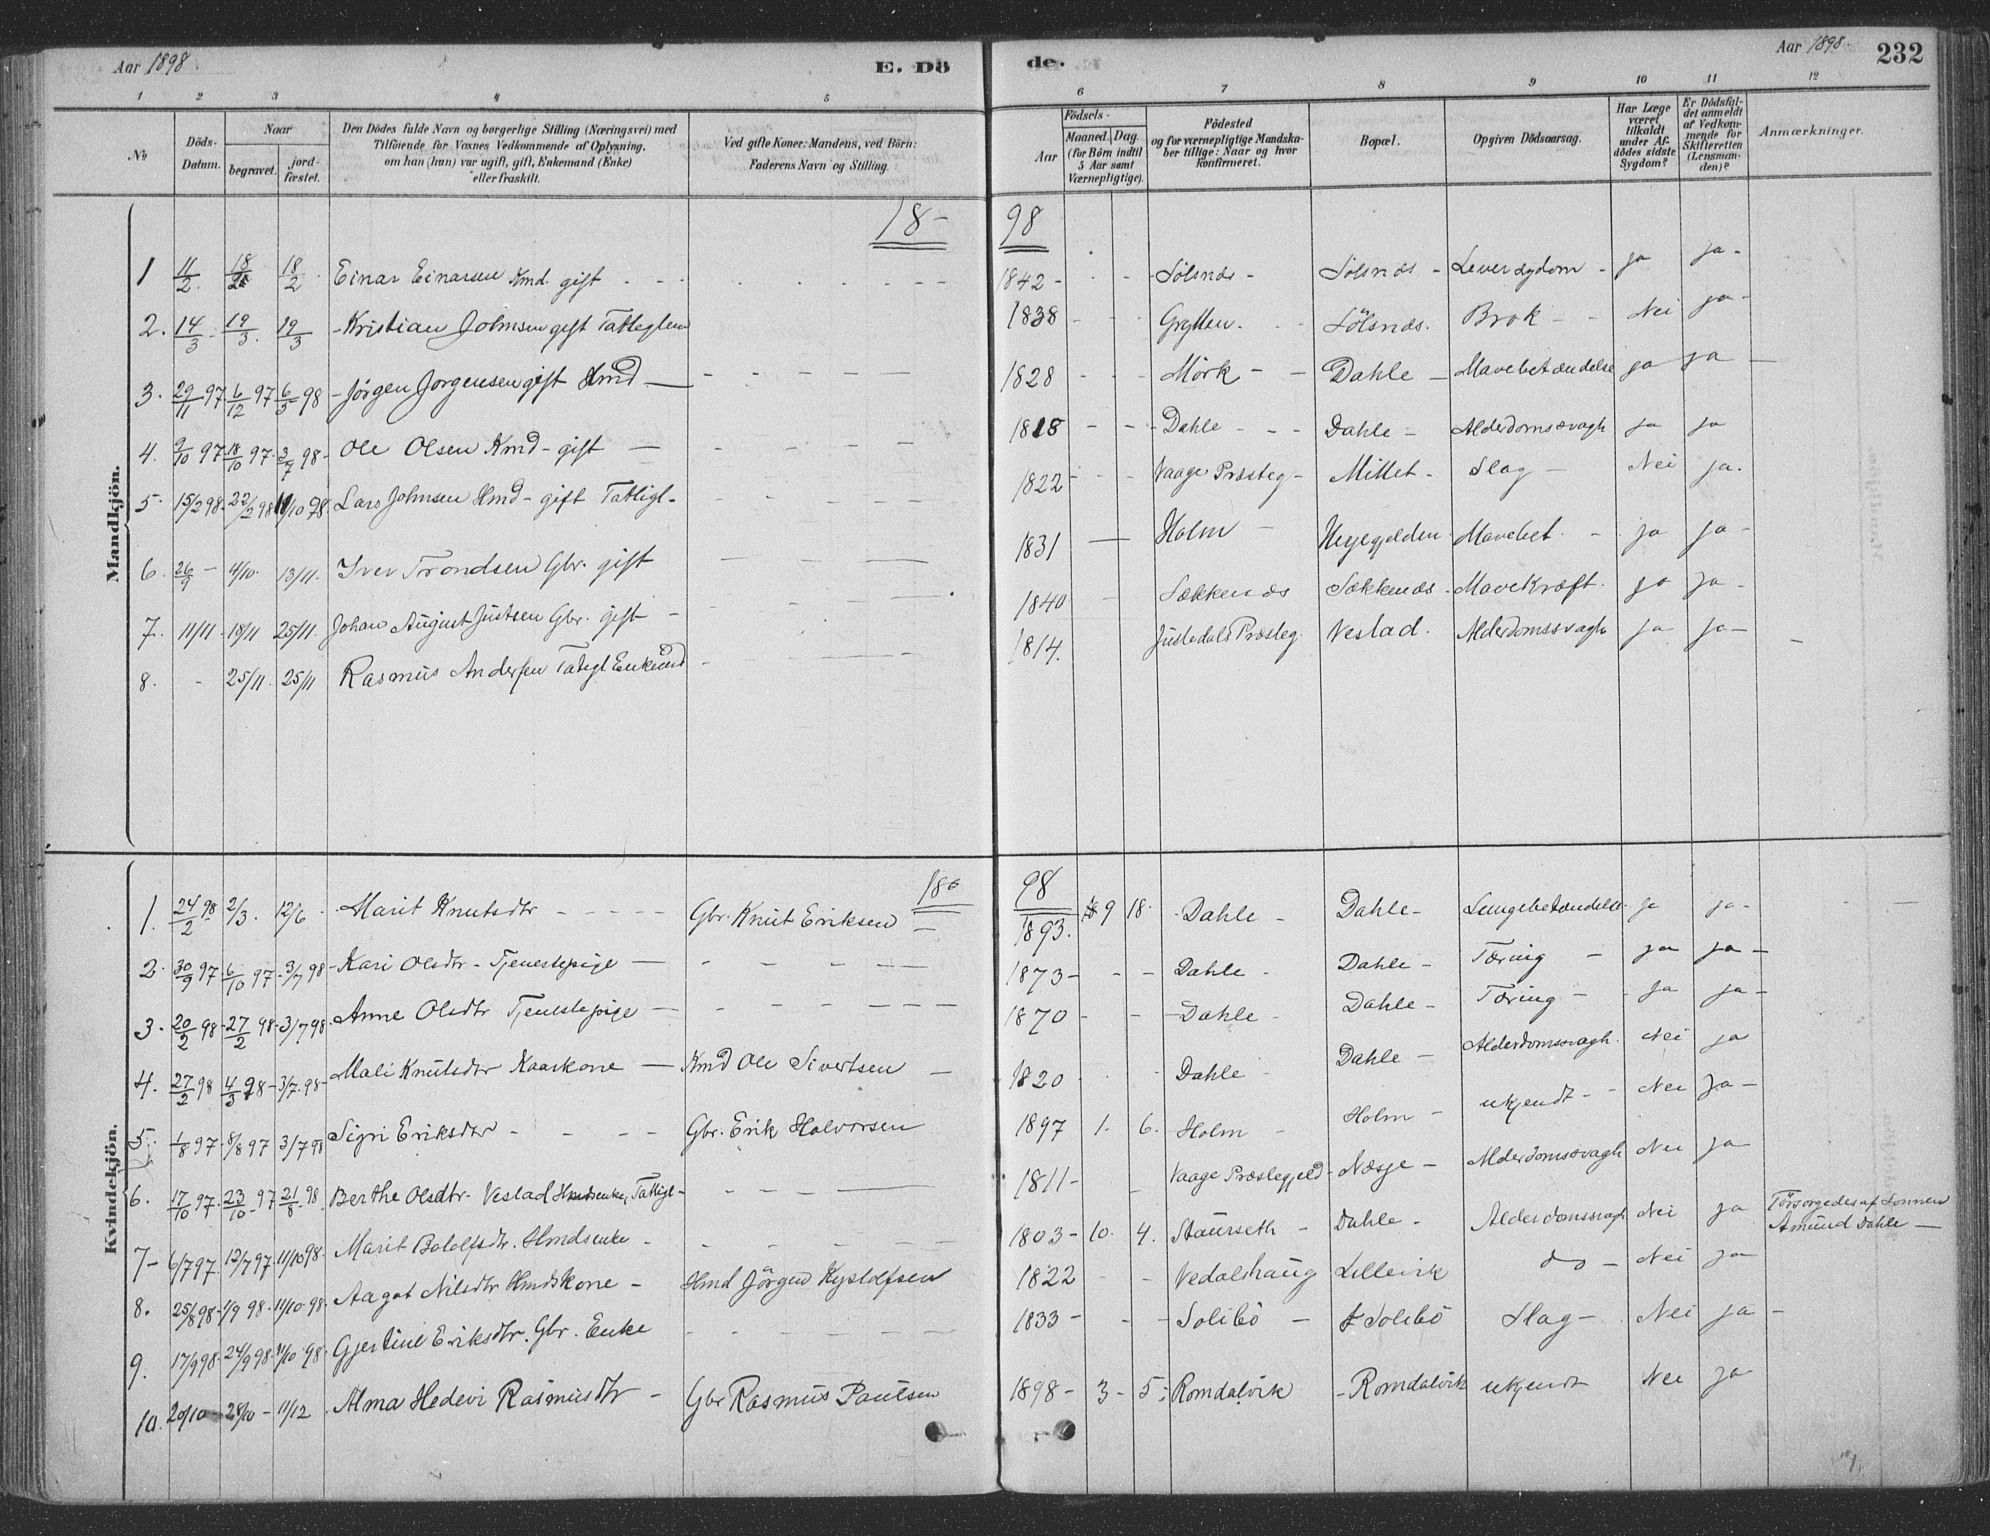 Aar 1898
E. Dö
de.
Aar 1898
232
1 2 3 4 5 6 7 8 9 10 11 12
No
Döds-Datum.
Naar
begravet.
jord-fæstet.
Den Dödes fulde Navn og borgerlige Stilling (Næringsvei) med
Tilföiende for Voxnes Vedkommende af Oplysning,
om han (hun) var ugift, gift, Enkemand (Enke)
eller fraskilt.
Ved gifte Koner: Mandens, ved Börn:
Faderens Navn og Stilling.
Födsels-
Aar
Maaned. Dag.
(for Börn indtil
5 Aar samt
Værnepligtige).
Födested
og for værnepligtige Mandska-
ber tillige: Naar og hvor
konfirmeret.
Bopæl.
Opgiven Dödsaarsag.
Har Læge
været
tilkaldt
under Af-
dødes sidste
Sygdom?
Er Dödsfal-
det anmeldt
af Vedkom-
mende for
Skifteretten
(Lensman-
den)?
Anmærkninger.
Mandkjön.
18-98
1 11/2 18/2 18/2 Einar Einarsen Kmd. gift 1842 Sölsnæs Sölsnæs Leversygdom ja ja
2. 14/3 19/3 19/3 Kristian Johnsen gift 1838 Grytten Sölsnæs. Brok Nei ja
3. 29/11 97 6/12 97 6/5 98 Jörgen Jorgensen gift Hmd 1828 Mörk Dahle Mavebetændelse ja ja
4. 9/10 97 18/10 97 3/7 98 Ole Olsen Kmd gift 1818 Dahle Dahle Alderdomssvagh ja ja
5. 15/2 98 22/2 98 11/10 98 Lars Johnsen Hmd gift Fattigl. 1822 Vaage Præsteg Mittet Slag Nei ja.
6. 26/9 4/10 13/11 Iver Trondsen Gbr. gift 1831 Holm Mavebet. ja ja
7. 11/11 18/11 25/11 Johan August Justsen Gbr. gift 1840 Sækkenæs Sækkenæs Mavekræft ja ja
8. - 25/11 25/11 Rasmus Andersen 1814. Justedals Præsteg. Vestad. Alderdomssvagh ja ja
Kvindekjön.
18-98
1. 24/2 98 2/3. 12/6 Marit Knutsdtr Gbr. Knut Eriksen 1893. 9 18. Dahle Dahle Lungebetændelse ja ja
2. 30/9 97 6/10 97 3/7 98 Kari Olsdtr Tjenestepige 1873 Dahle Dahle Tæring ja ja
3. 20/2 98 27/2 98 3/7 98 Anne Olsdtr Tjenestepige 1870 Dahle Dahle Tæring ja ja
4. 27/2 98 4/3 98 3/7 98 Mali Knutsdtr Kaarkone Kmd Ole Sivertsen 1820 Dahle Dahle Alderdomssvagh. Nei ja
5. 1/8 97 8/8 97 3/7 98 Sigri Eriksdtr Gbr. Erik Halvorsen 1897 1. 6. Holm Holm ukjendt Nei Ja
6. 17/10 97 23/10 97 21/8 98 Berthe Olsdtr Vestad Hmdsenke, Fattigl 1811 Vaage Præstegjeld Næsje Alderdomssvagh Nei ja
7 6/7 97 12/7 97 11/10 98. Marit Bololfsdtr. Hmdsenke 1803 10. 4. Staurseth Dahle Alderdomssvagh Nei ja Forsörgedes af Sönnen
Amund Dahle
8. 25/8 98 1/9 98 11/10 98 Aagot Nilsdtr Hmdskone Hmd Jörgen 1822 Vedalshaug Lillevik do Nei ja
9. 17/9 98 24/9 98 11/10 98 Gjertine Eriksdtr. Gbr. Enke 1833 Solibö Solibö Slag Nei ja
10. 20/10 28/10 11/12 Alma Hedevi Rasmusdtr Gbr Rasmus Paulsen 1898 3 5 Romdalvik Romdalvik ukjendt Nei ja